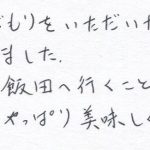 どもりをいただいた
ました.
飯田へ行くこと
やっぱり美味しく